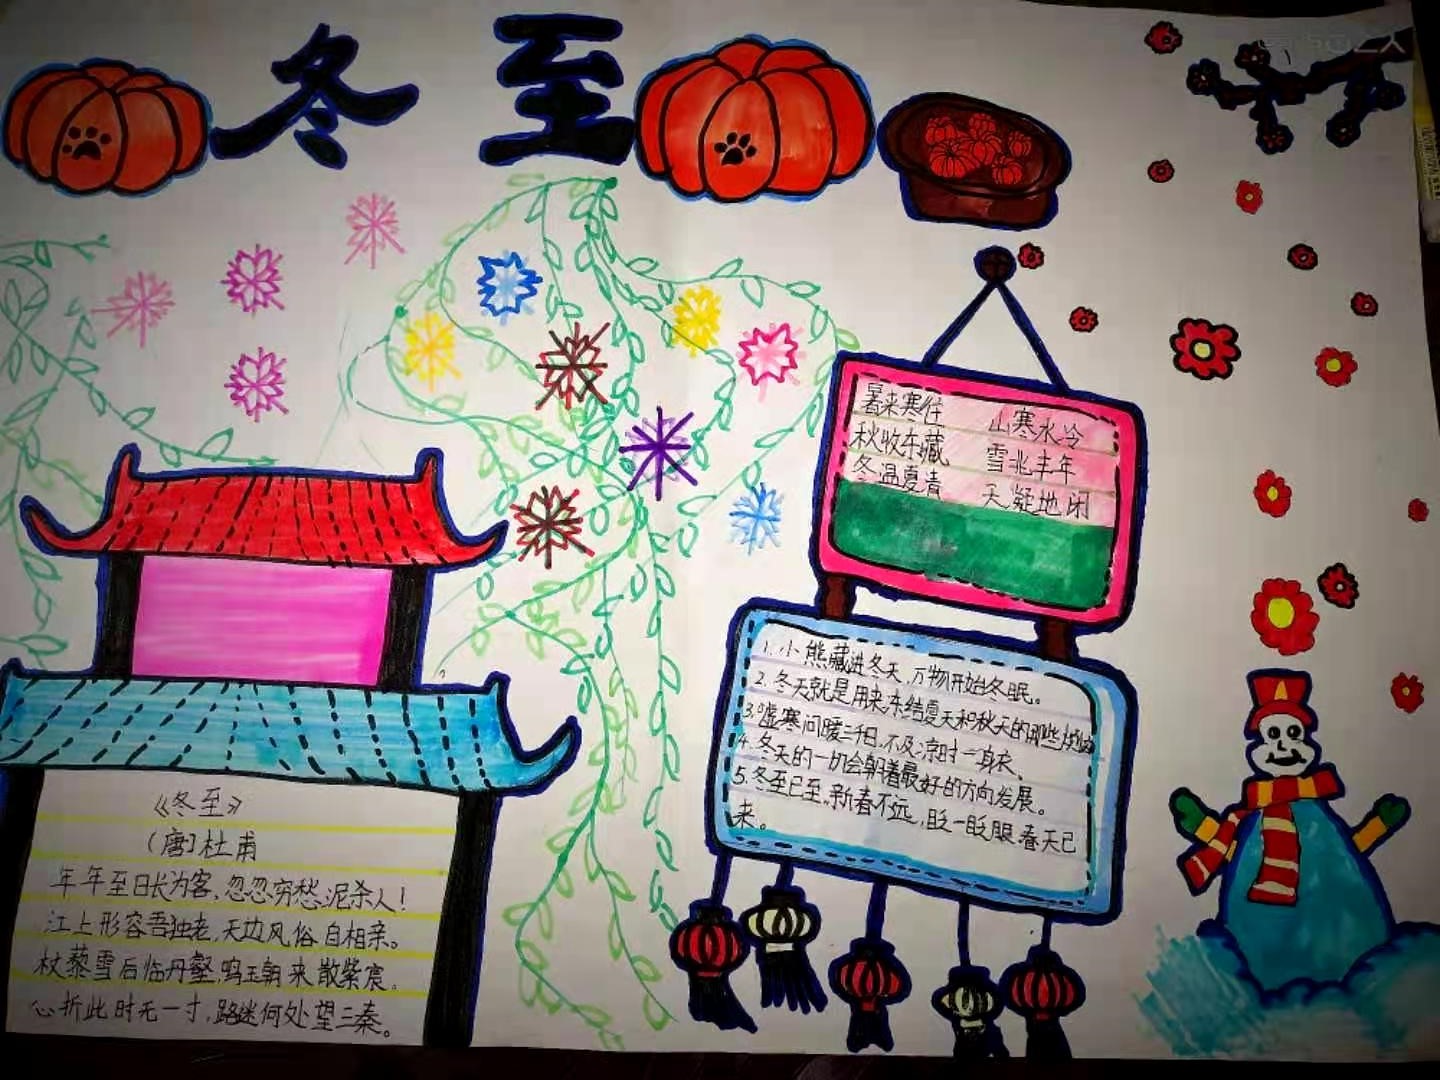 冬至
暑来寒往 山寒水冷
秋收冬藏 雪兆丰年
冬温夏青 天凝地闭
1.小熊藏进冬天,万物开始冬眠。
2.冬天就是用来冻结夏天和秋天的那些烦恼
3.嘘寒问暖三千日,不及凉时一身衣、
4.冬天的一切会朝着最好的方向发展。
5.冬至已至。新春不远,眨一眨眼.春天已
来。
《冬至》
(唐]杜甫
年年至日长为客,忽忽穷愁泥杀人!
江上形容吾独老,天边风俗自相亲。
杖藜雪后临丹壑,鸣玉朝来散紫宸。
心折此时无一寸,路迷何处望三秦。